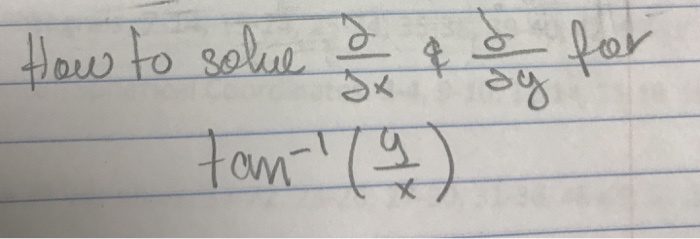 How to solve ∂/∂x & ∂/∂y for
tan⁻¹(y/x)